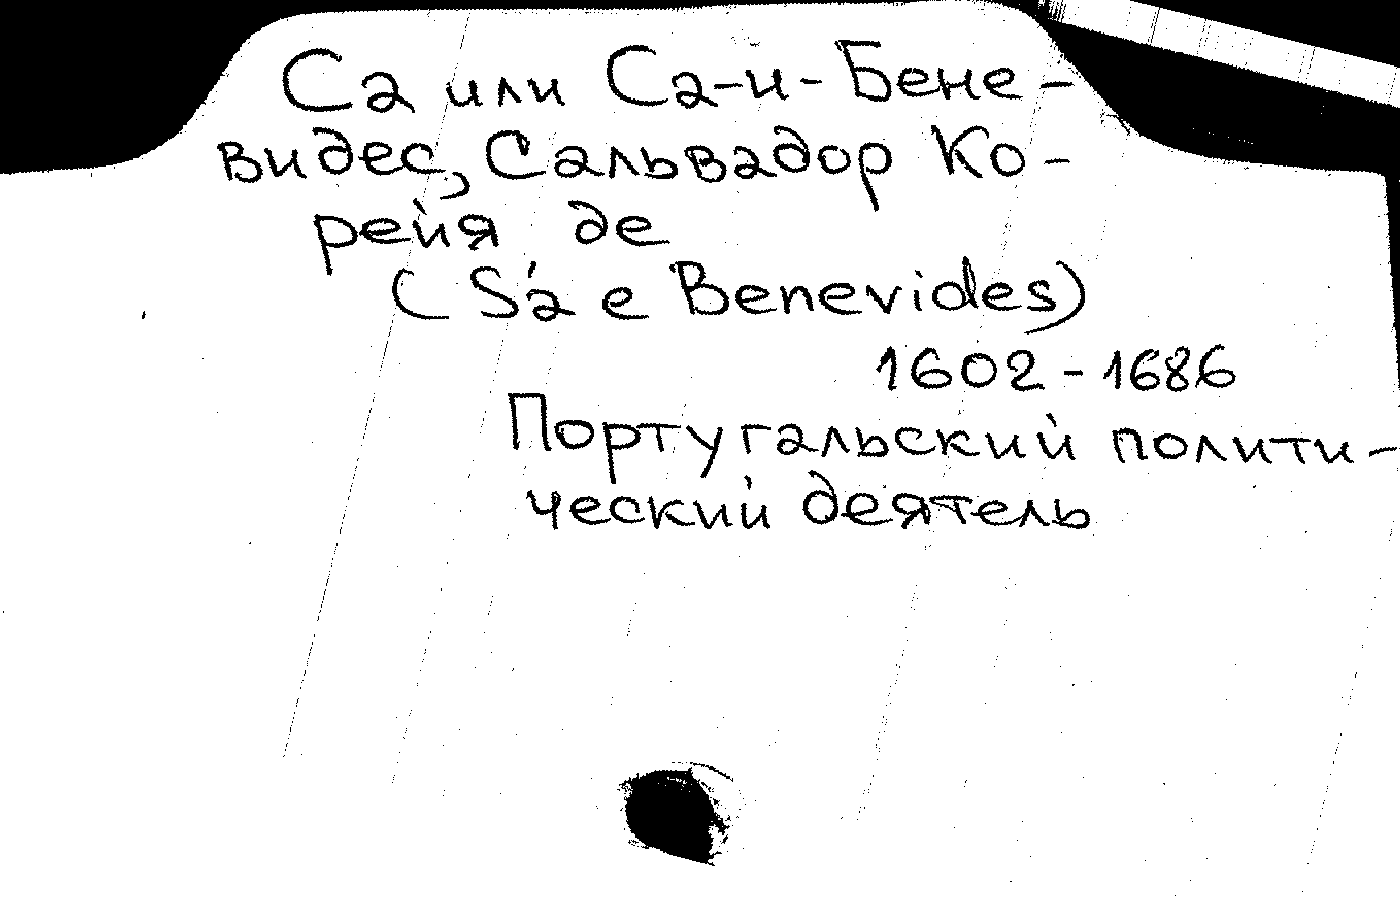 Са или Са-и-Бене-
видес, Сальвадор Ко-
рейя де
(Sá e Benevides)
1602-1686
Португальский полити-
ческий деятель